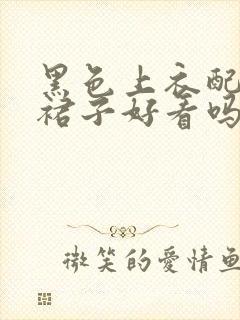 黑色上衣配
裙子好看吗
微笑的爱情鱼